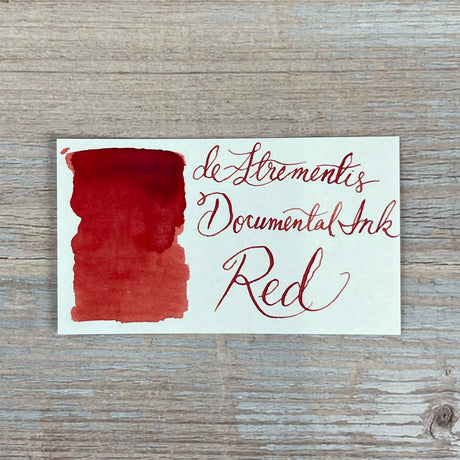 deAtrementis
Documental Ink
Red